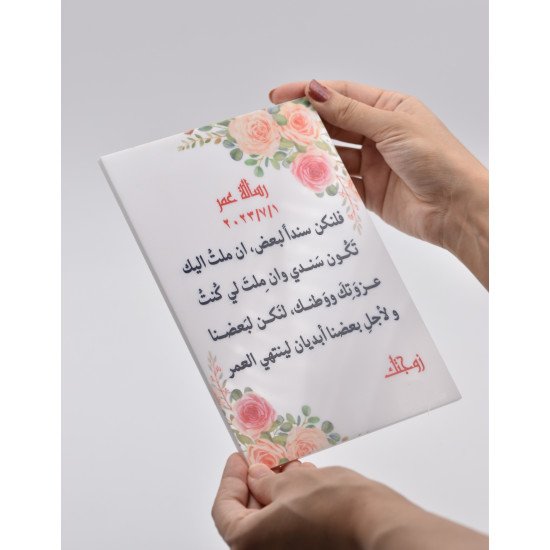 رسالة عمر
٢٠٢٣/٧/١
فلنكن سنداً لبعض، ان ملتُ اليك
تَكُون سَندي وان مِلتَ لي كُنتُ
عزوَتِكَ ووَطنك، لنَكن لبَعضنا
ولأجلِ بعضنا أبديان لينتهي العمر
زوجتك